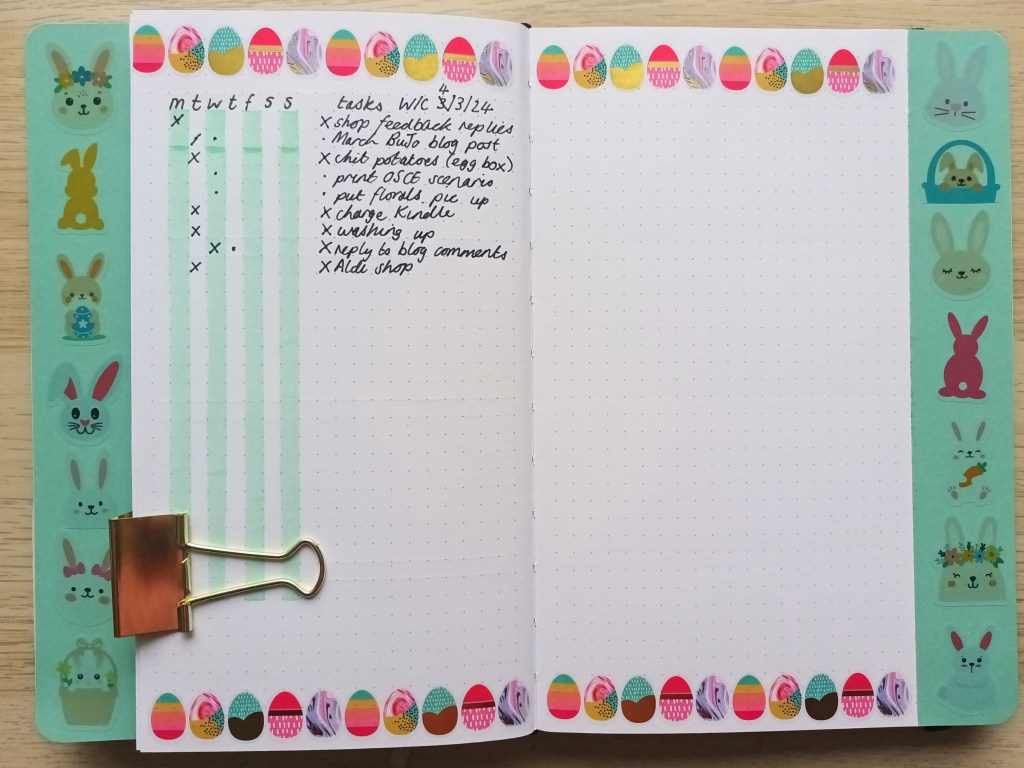 m t w t f s s tasks W/C 4/3/24
x x shop feedback replies
/ · · March BuJo blog post
x x chit potatoes (egg box)
· · print OSCE scenario
· · put florals pic up
x x charge Kindle
x x washing up
x · x reply to blog comments
x x Aldi shop